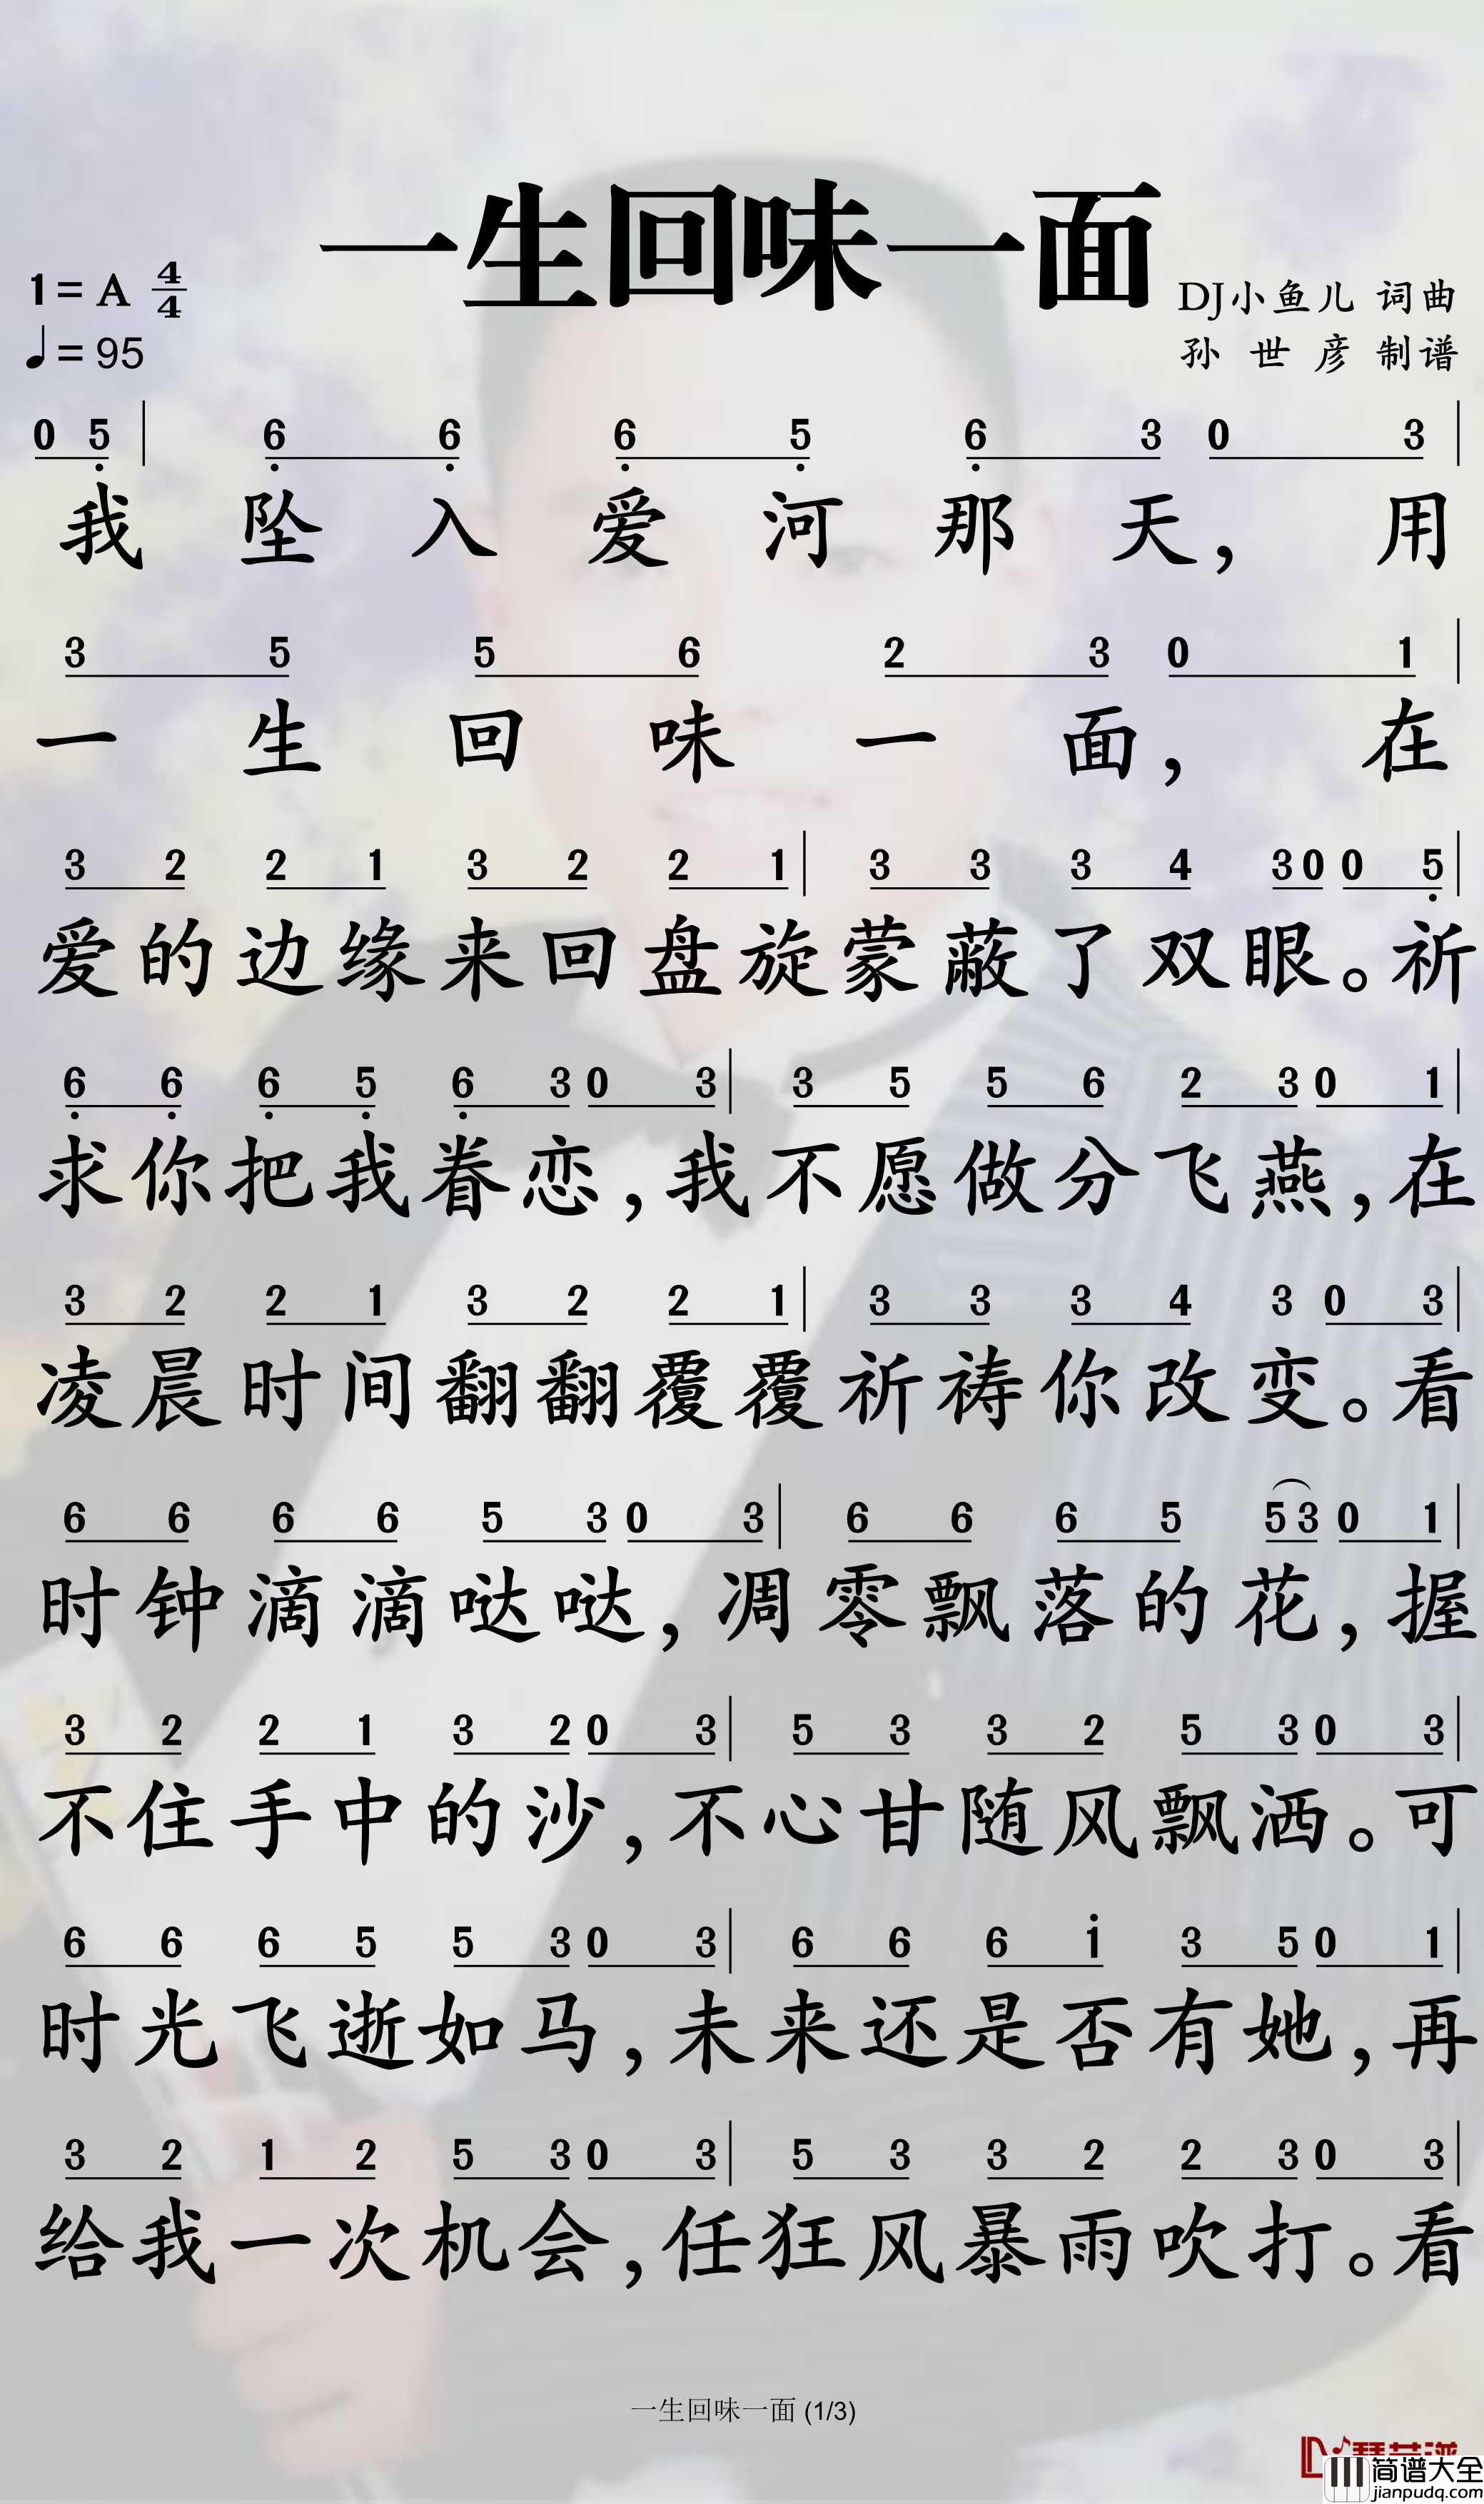 一生回味一面
1=A 4/4
♩=95
DJ小鱼儿 词曲
孙世彦 制谱
0 5 | 6 6 6 5 6 3 0 3 |
我 坠 入 爱 河 那 天， 用
3 5 5 6 2 3 0 1 |
一 生 回 味 一 面， 在
3 2 2 1 3 2 2 1 | 3 3 3 4 3 0 0 5 |
爱的边缘来回盘旋蒙蔽了双眼。祈
6 6 6 5 6 3 0 3 | 3 5 5 6 2 3 0 1 |
求你把我眷恋，我不愿做分飞燕，在
3 2 2 1 3 2 2 1 | 3 3 3 4 3 0 3 |
凌晨时间翻翻覆覆祈祷你改变。看
6 6 6 6 5 3 0 3 | 6 6 6 5 5 3 0 1 |
时钟滴滴哒哒，凋零飘落的花，握
3 2 2 1 3 2 0 3 | 5 3 3 2 5 3 0 3 |
不住手中的沙，不心甘随风飘洒。可
6 6 6 5 5 3 0 3 | 6 6 6 i 3 5 0 1 |
时光飞逝如马，未来还是否有她，再
3 2 1 2 5 3 0 3 | 5 3 3 2 2 3 0 3 |
给我一次机会，任狂风暴雨吹打。看
一生回味一面 (1/3)
简谱大全
jianpudq.com